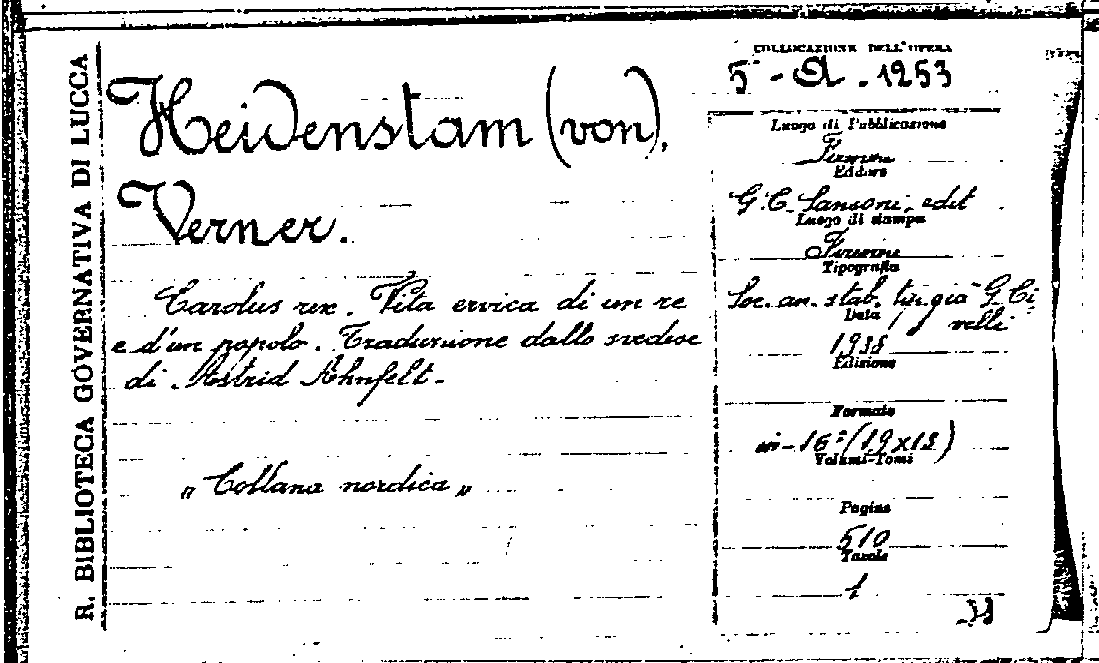 R. BIBLIOTECA GOVERNATIVA DI LUCCA
Heidenstam (von),
Verner.
Carolus rex. Vita eroica di un re
e d'un popolo. Traduzione dallo svedese
di Astrid Ahnfelt.
„ Collana nordica „
COLLOCAZIONE DELL'OPERA
5 - A. 1253
Luogo di Pubblicazione
Firenze
Editore
G. C. Sansoni, edit
Luogo di stampa
Firenze
Tipografia
Soc. an. stab. tip. già G. Ci
velli
Data
1938
Edizione
Formato
in-16° (19x13)
Volumi-Tomi
Pagine
510
Tavole
1